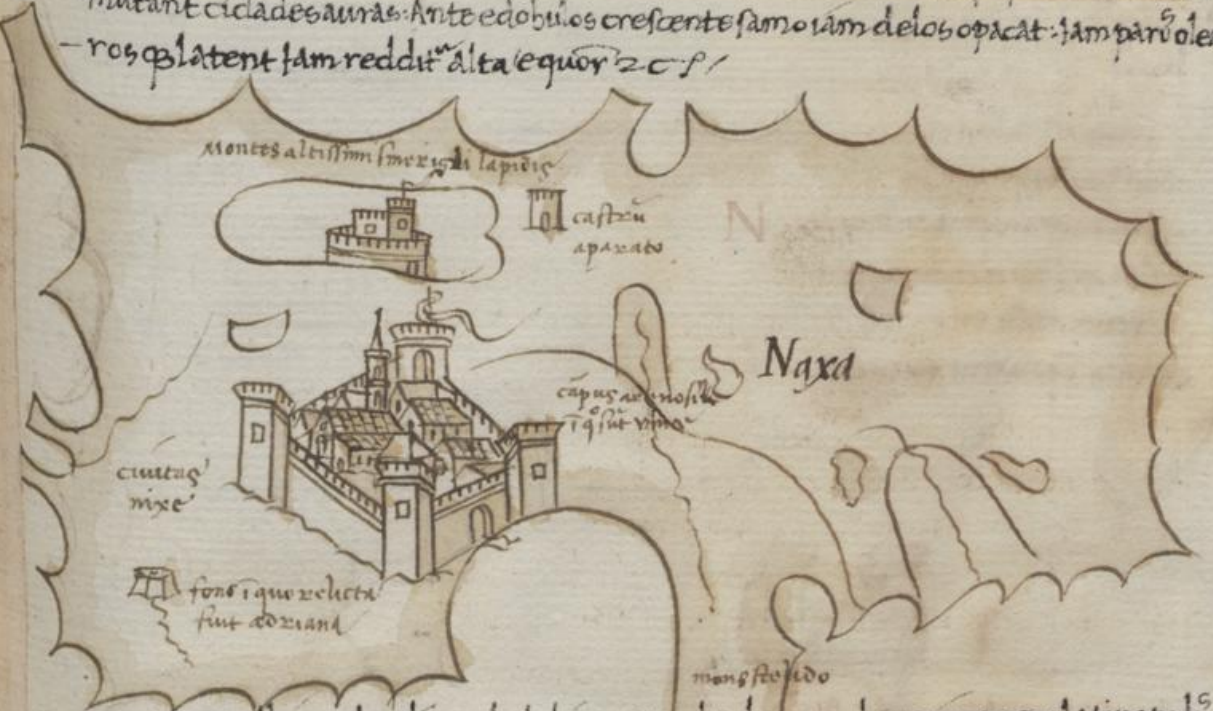 mutant cicladesauras: Ante edobulos crescente samo iam delos opacat: Iam parvs ole
rosqȝ latent Iam reddit alta equor
Montes altissimi smerigli lapidis
castrũ
aparato
Naxa
cãpus arenosus
ĩ qº sũt vinee
ciuitas
nixe
fons ĩ quo relicta
fuit adriana
mons